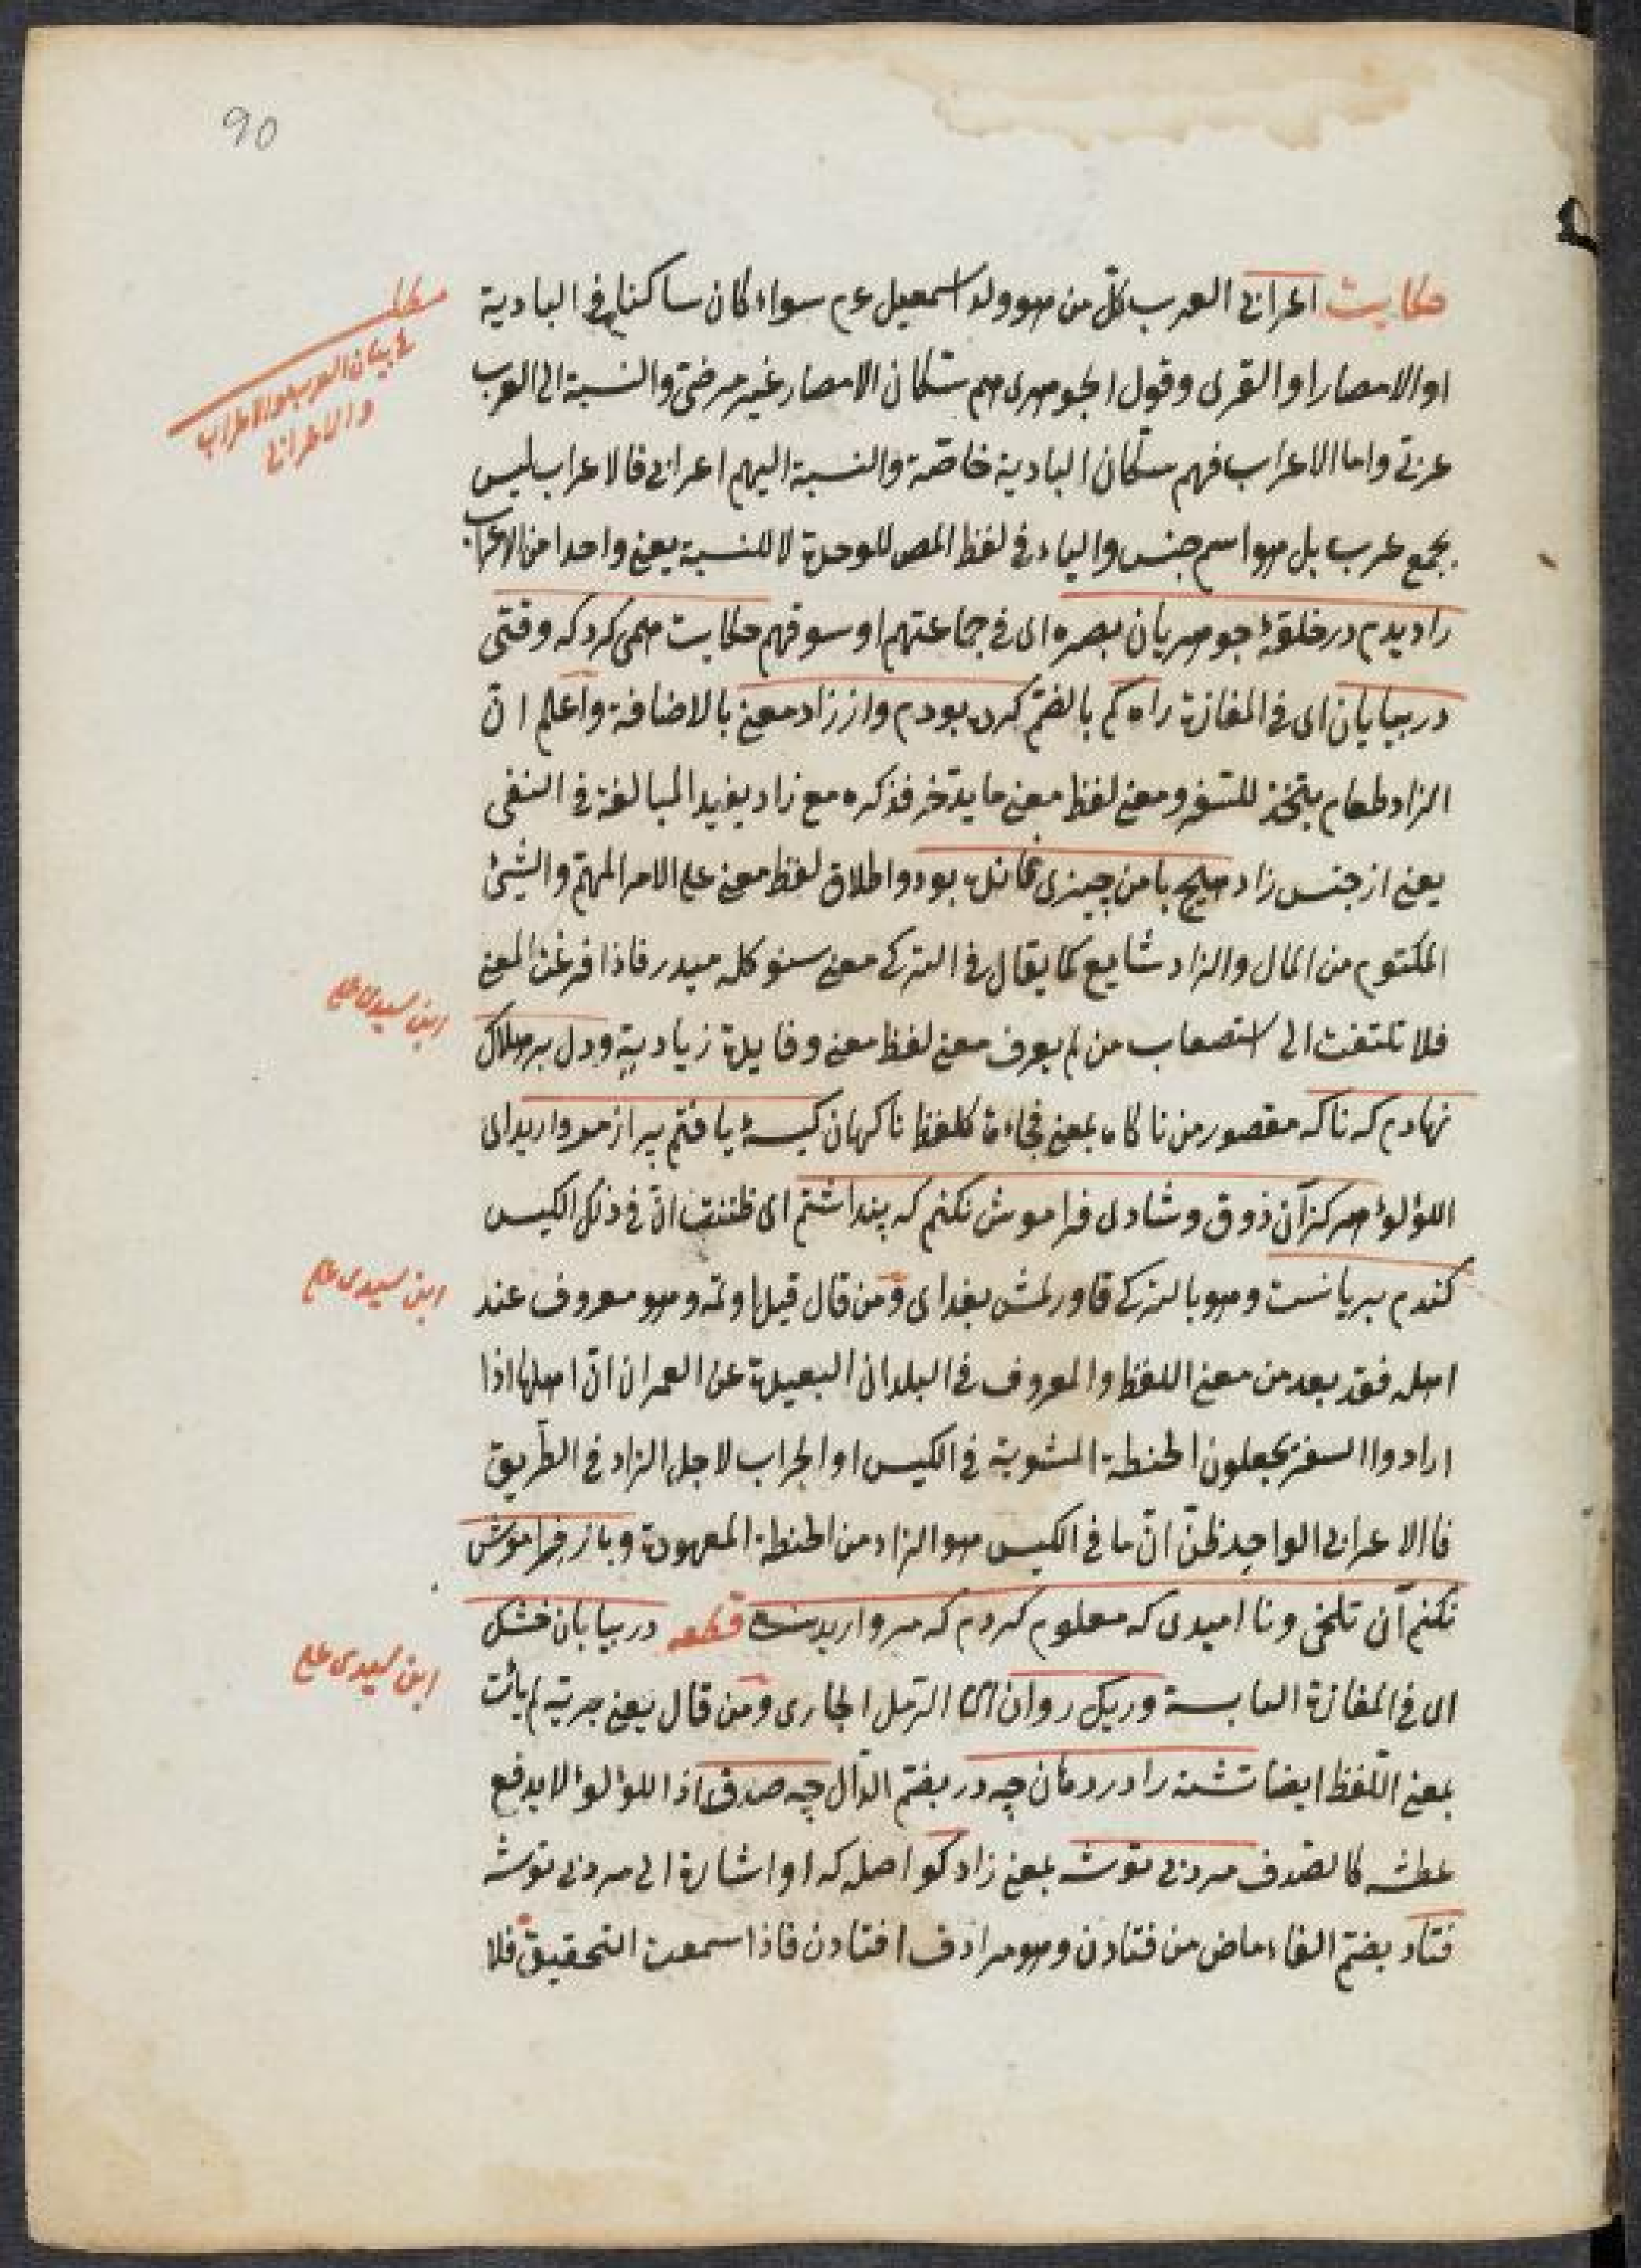 90
حكايت اعرابى العرب كلّ من هو ولد اسمعيل عم سواء كان ساكنا فى البادية
او الامصار او القرى وقول الجوهرى هم سكان الامصار غير مرضىّ والنسبة الى العرب
عربّى واما الاعراب فهم سكّان البادية خاصّة والنسبة اليهم اعرابى فالاعراب ليس
بجمع عرب بل هو اسم جنس والياء فى لفظ المص للوحدة لا للنسبة يعنى واحدا من الاعراب
را ديدم در خلقۀ جوهريان بصره اى فى جماعتهم او سوقهم حكايت همى كرد كه وقتى
در بيابان اى فى المفازة راه كم بالضّم كرده بودم واز زاد معنى بالاضافة واعلم انّ
الزاد طعام يتّخذ للسّفر ومعنى لفظ معنى ما يدّخر فذكره مع زاد يفيد المبالغة فى النفى
يعنى از جنس زاد هيچ با من چيزى نمانده بود واطلاق لفظ معنى على الامر المهمّ والشيئ
المكتوم من المال والزاد شايع كما يقال فى التركى معنى سنوكله ميدر فاذا فرغت المعنى
فلا تلتفت الى استصعاب من لم يعرف معنى لفظ معنى وفايدة زيادته ودل بر هلاك
نهادم كه ناكه مقصور من ناكاه بمعنى فجاءة كلفظ ناكهان كيسۀ يافتم پر از مرواريد اى
اللؤلؤ هركز آن ذوق وشادى فراموش نكنم كه پنداشتم اى ظننت انّ فى ذلك الكيس
كندم بريانست وهو بالتركى قاورلمش بغداى ومن قال قيل اولمه وهو معروف عند
اهله فقد بعد من معنى اللفظ والمعروف فى البلدان البعيدة عن العمران انّ اهلها اذا
ارادوا السفر يجعلون الحنطة المشوية فى الكيس او الجراب لاجل الزاد فى الطّريق
فاالاعرابى الواجد ظنّ انّ ما فى الكيس هو الزاد من الحنطة المعهودة وباز فراموش
نكنم آن تلخى ونااميدى كه معلوم كردم كه مرواريدست قطعه در بيابان خشك
اى فى المفازة اليابسة وريك روان اى الرّمل الجارى ومن قال يعنى جريه لم يأت
بمعنى اللّفظ ايضا تشنه را در دهان چه در بضّم الدّال چه صدف اذ اللؤلؤ لا يدفع
عطشه كالصّدف مرد بى توشه بمعنى زاد كو اصله كه او اشارة الى مرد بى توشه
فتاد بضّم الفاء ماض من فتادن وهو مرادف افتادن فاذا سمعت التحقيق فلا
مطلب
فى بيان العرب والاعراب
والاعرابى
ابن سيدى على
ابن سيدى على
ابن سيدى على